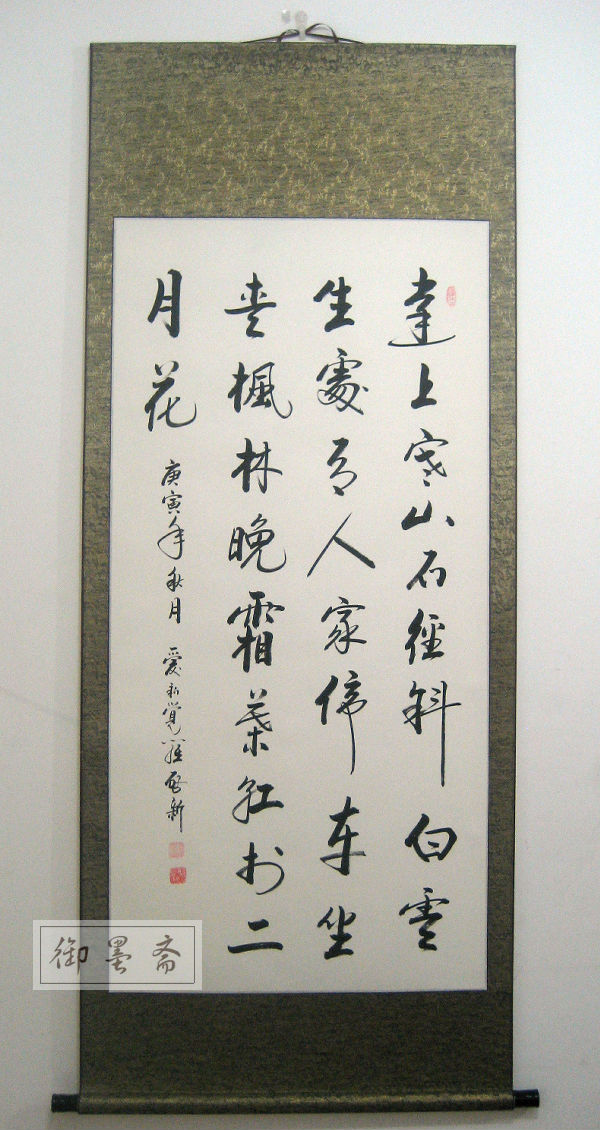 遠上寒山石徑斜白雲
生處有人家停車坐
愛楓林晚霜葉紅於二
月花
庚寅年秋月 愛新覺羅啟新
御墨斋